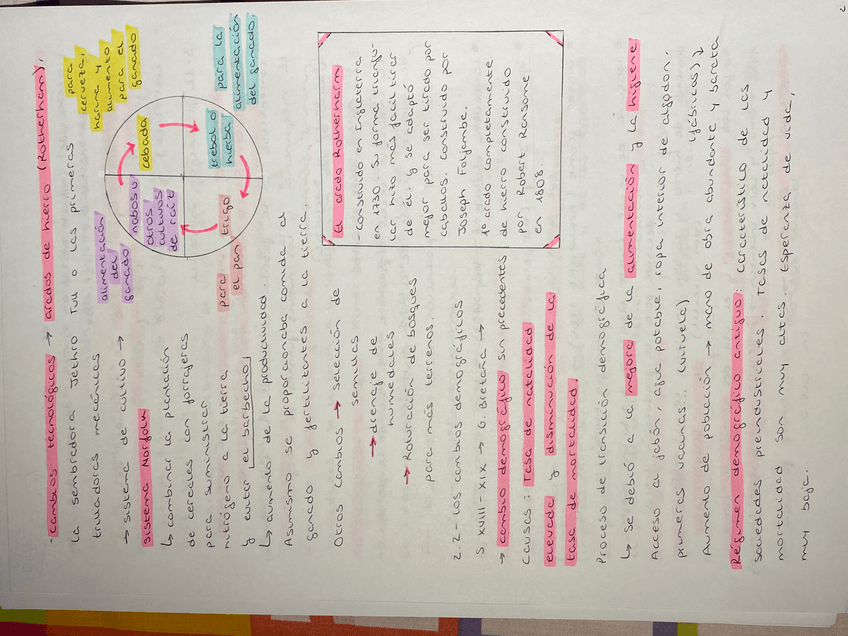 - Cambios tecnológicos → arados de hierro (Rotherham),
la sembradora Jethro Tull o las primeras
trilladoras mecánicas
→ sistema de cultivo →
sistema Norfolk
↳ combinar la plantación
de cereales con forrajeras
para suministrar
nitrógeno a la tierra
y evitar el barbecho
↳ aumento de la productividad.
Asimismo se proporcionaba comida al
ganado y fertilizantes a la tierra.
para
cerveza,
harina y
alimento
para el
ganado
cebada
para la
alimentación
del ganado
trebol o
hierba
trigo
para
el pan
nabos u
otros
cultivos
de raíz
alimentación
del
ganado
Otros cambios → selección de
semillas
→ drenaje de
humedales
→ Roturación de bosques
para más terrenos.
El arado Rotherham
- Construido en Inglaterra
en 1730. Su forma triangu-
lar hizo más fácil tirar
de él y se adaptó
mejor para ser tirado por
caballos. Construido por
Joseph Foljambe.
1º arado completamente
de hierro construido
por Robert Ransome
en 1808
2.2- Los cambios demográficos
S XVIII-XIX → G. Bretaña →
→ cambio demográfico sin precedentes
Causas: Tasa de natalidad
elevada y disminución de la
tasa de mortalidad.
Proceso de transición demográfica
↳ Se debió a la mejora de la alimentación y la higiene
Acceso al jabón, agua potable, ropa interior de algodón,
primeras vacunas... (viruela) (fábricas) ↓
Aumento de población → mano de obra abundante y barata
Régimen demográfico antiguo: característico de las
sociedades preindustriales. Tasas de natalidad y
mortalidad son muy altas. Esperanza de vida,
muy baja.